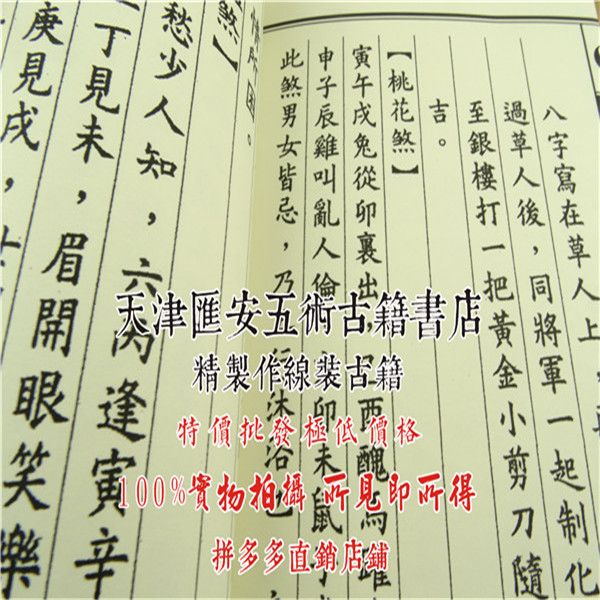 八字寫在草人上，
過草人後，同將軍一起制化
至銀樓打一把黃金小剪刀隨
吉。
【桃花煞】
寅午戌兔從卯裏出，巳酉醜馬躍
申子辰雞叫亂人倫，卯未鼠子
此煞男女皆忌，乃沐浴
情所困。
煞】
愁少人知，六丙逢寅辛
丁見未，眉開眼笑樂
庚見戌，
天津匯安五術古籍書店
精製作線裝古籍
特價批發極低價格
100%實物拍攝 所見即所得
拼多多直銷店鋪